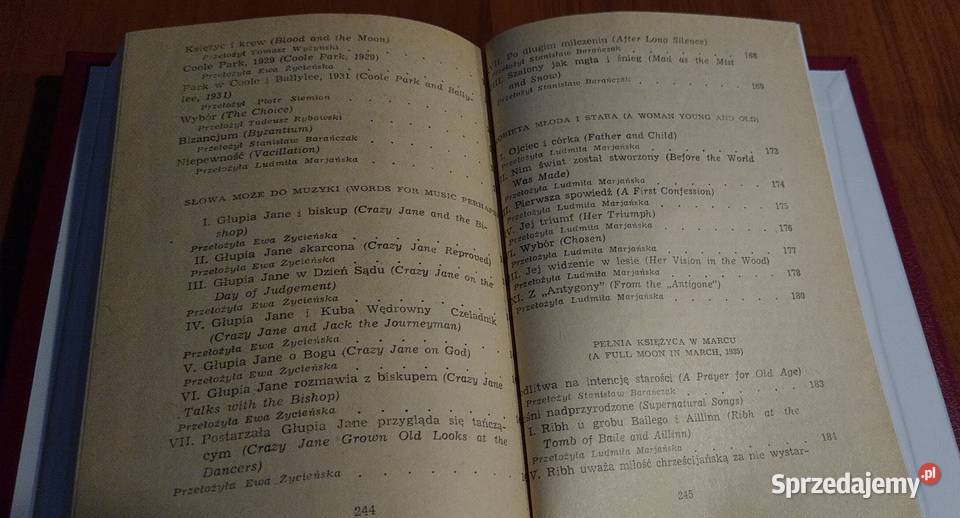 Księżyc i krew (Blood and the Moon)
Przełożył Tomasz Wyżyński
Coole Park, 1929 (Coole Park, 1929)
Przełożyła Ewa Życieńska
Park w Coole i Ballylee, 1931 (Coole Park and Bally-
lee, 1931)
Przełożył Piotr Siemion
Wybór (The Choice)
Przełożył Tadeusz Rybowski
Bizancjum (Byzantium)
Przełożył Stanisław Barańczak
Niepewność (Vacillation)
Przełożyła Ludmiła Marjańska
SŁOWA MOŻE DO MUZYKI (WORDS FOR MUSIC PERHAPS)
I. Głupia Jane i biskup (Crazy Jane and the Bi-
shop)
Przełożyła Ewa Życieńska
II. Głupia Jane skarcona (Crazy Jane Reproved)
Przełożyła Ewa Życieńska
III. Głupia Jane w Dzień Sądu (Crazy Jane on the
Day of Judgement)
Przełożyła Ewa Życieńska
IV. Głupia Jane i Kuba Wędrowny Czeladnik
(Crazy Jane and Jack the Journeyman)
Przełożyła Ewa Życieńska
V. Głupia Jane o Bogu (Crazy Jane on God)
Przełożyła Ewa Życieńska
VI. Głupia Jane rozmawia z biskupem (Crazy Jane
Talks with the Bishop)
Przełożyła Ewa Życieńska
VII. Postarzała Głupia Jane przygląda się tańczą-
cym (Crazy Jane Grown Old Looks at the
Dancers)
Przełożyła Ewa Życieńska
244
VII. Po długim milczeniu (After Long Silence)
Przełożył Stanisław Barańczak 168
III. Szalony jak mgła i śnieg (Mad as the Mist
and Snow)
Przełożył Stanisław Barańczak 169
KOBIETA MŁODA I STARA (A WOMAN YOUNG AND OLD)
I. Ojciec i córka (Father and Child)
Przełożyła Ludmiła Marjańska 173
II. Nim świat został stworzony (Before the World
Was Made)
Przełożyła Ludmiła Marjańska 174
II. Pierwsza spowiedź (A First Confession)
Przełożyła Ludmiła Marjańska
V. Jej triumf (Her Triumph) 176
Przełożyła Ludmiła Marjańska
VI. Wybór (Chosen) 177
Przełożyła Ludmiła Marjańska
II. Jej widzenie w lesie (Her Vision in the Wood)
Przełożyła Ludmiła Marjańska 178
XI. Z „Antygony” (From the „Antigone”)
Przełożyła Ludmiła Marjańska 180
PEŁNIA KSIĘŻYCA W MARCU
(A FULL MOON IN MARCH, 1935)
odlitwa na intencję starości (A Prayer for Old Age)
Przełożył Stanisław Barańczak 183
śni nadprzyrodzone (Supernatural Songs)
I. Ribh u grobu Bailego i Aillinn (Ribh at the
Tomb of Baile and Aillinn)
Przełożyła Ludmiła Marjańska 184
V. Ribh uważa miłość chrześcijańską za nie wystar-
245
Sprzedajemy.pl